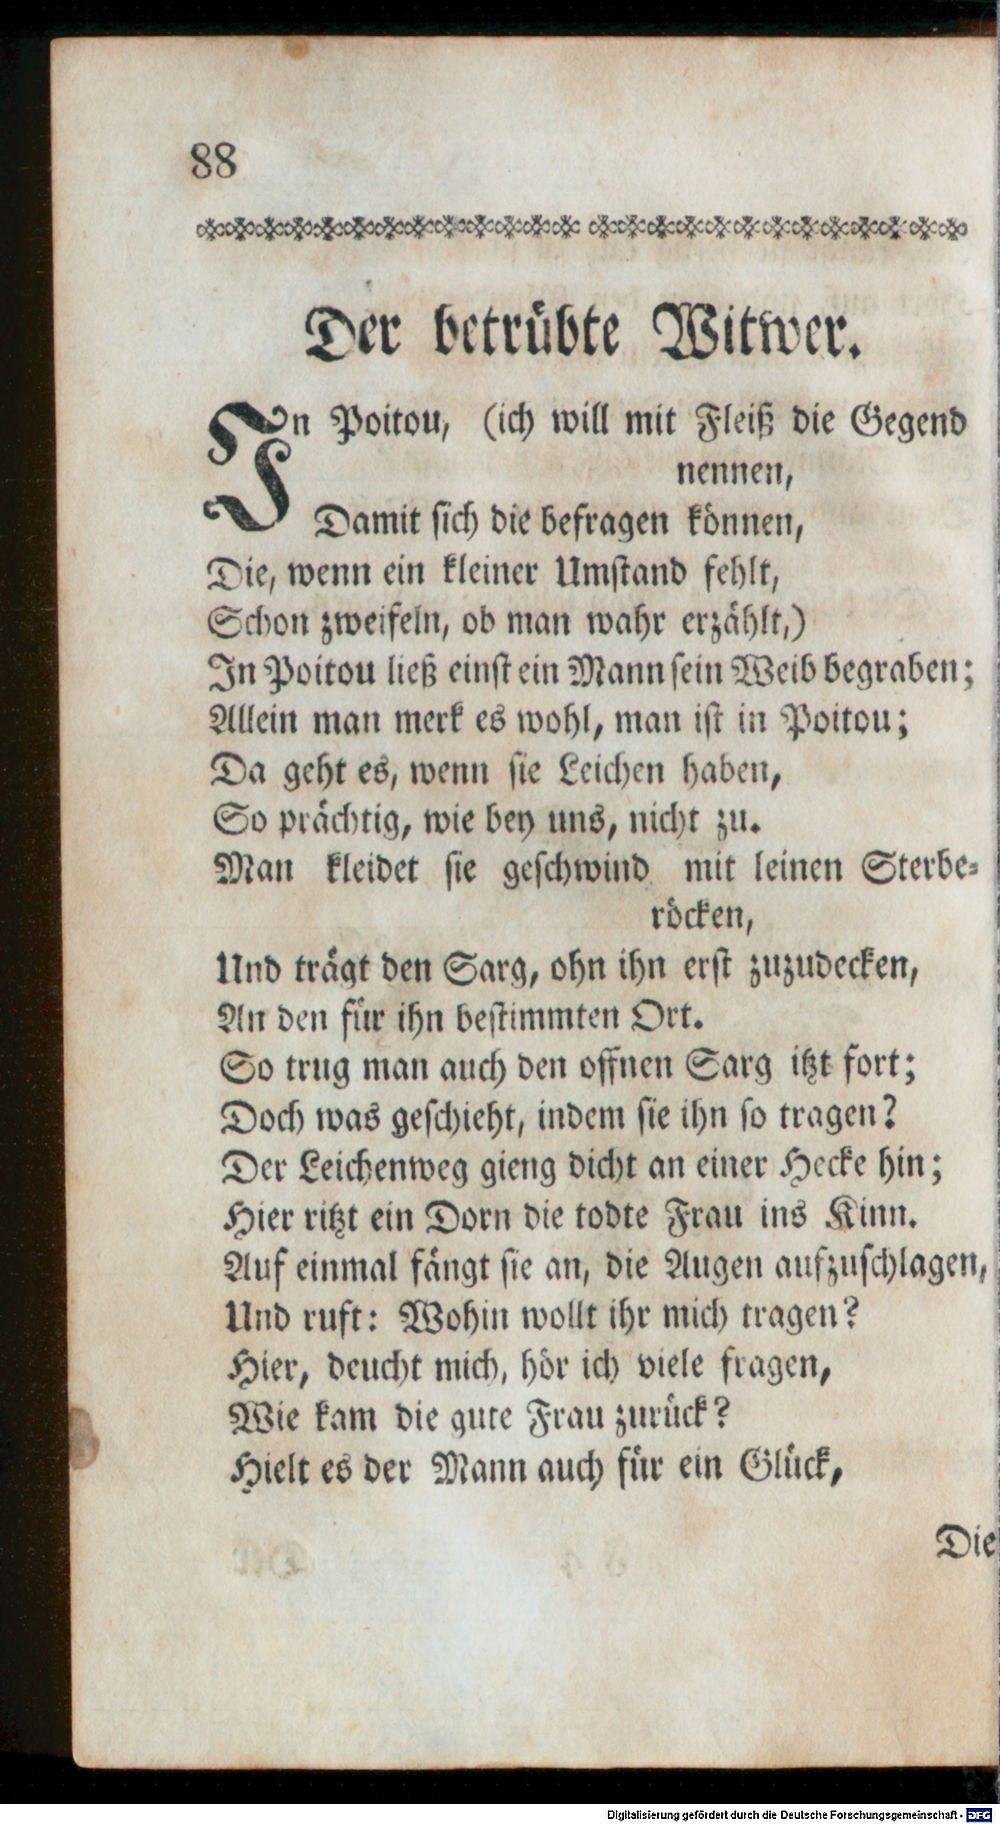 88
Der betrübte Witwer.
In Poitou, (ich will mit Fleiß die Gegend
nennen,
Damit sich die befragen können,
Die, wenn ein kleiner Umstand fehlt,
Schon zweifeln, ob man wahr erzählt,)
In Poitou ließ einst ein Mann sein Weib begraben;
Allein man merk es wohl, man ist in Poitou;
Da geht es, wenn sie Leichen haben,
So prächtig, wie bey uns, nicht zu.
Man kleidet sie geschwind mit leinen Sterbe-
röcken,
Und trägt den Sarg, ohn ihn erst zuzudecken,
An den für ihn bestimmten Ort.
So trug man auch den offnen Sarg itzt fort;
Doch was geschieht, indem sie ihn so tragen?
Der Leichenweg gieng dicht an einer Hecke hin;
Hier ritzt ein Dorn die todte Frau ins Kinn.
Auf einmal fängt sie an, die Augen aufzuschlagen,
Und ruft: Wohin wollt ihr mich tragen?
Hier, deucht mich, hör ich viele fragen,
Wie kam die gute Frau zurück?
Hielt es der Mann auch für ein Glück,
Die
Digitalisierung gefördert durch die Deutsche Forschungsgemeinschaft - DFG